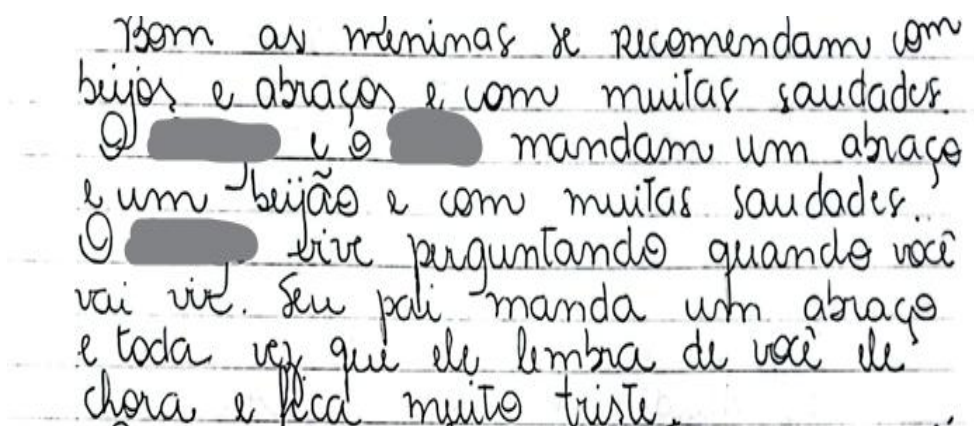 Bom as meninas se recomendam com
beijos e abraços e com muitas saudades.
O e o mandam um abraço
e um beijão e com muitas saudades.
O vive perguntando quando você
vai vir. Seu pai manda um abraço
e toda vez que ele lembra de você ele
chora e fica muito triste.